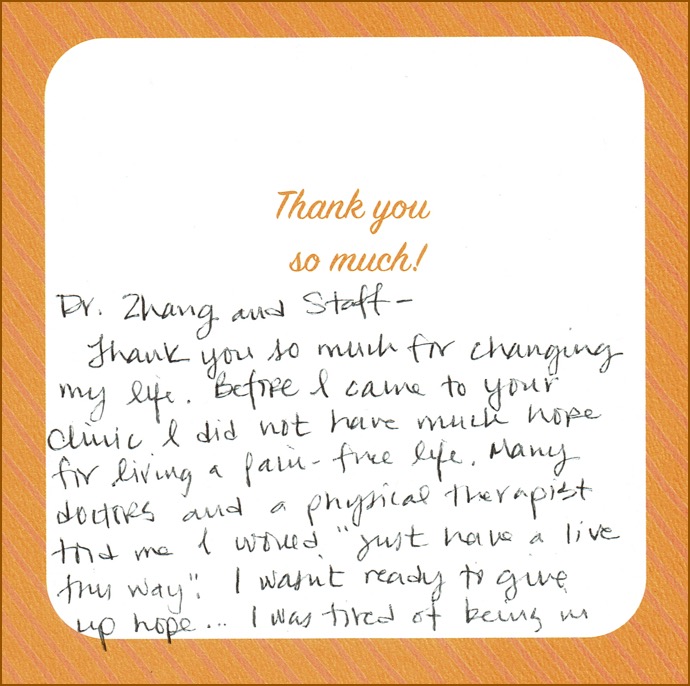 Thank you
so much!
Dr. Zhang and Staff-
Thank you so much for changing
my life. Before I came to your
clinic I did not have much hope
for living a pain-free life. Many
doctors and a physical therapist
told me I would "just have a live
this way". I wasn't ready to give
up hope... I was tired of being in